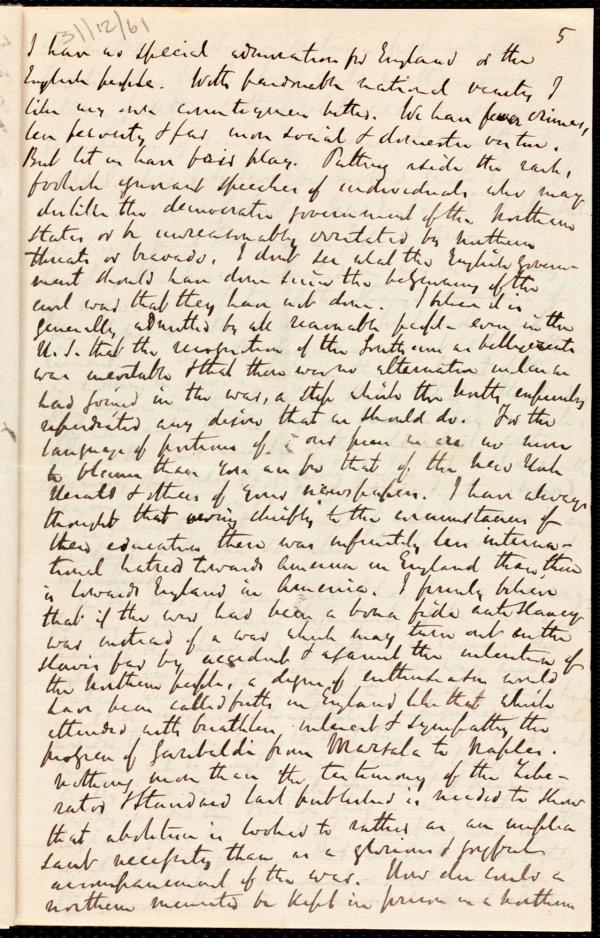 31/12/61
5
I have no special admiration for England or the
English people. With pardonable national vanity I
like my own countrymen better. We have fewer crimes,
less poverty & far more social & domestic virtue.
But let us have fair play. Putting aside the rash,
foolish ignorant speeches of individuals who may
dislike the democratic government of the Northern
States or be unreasonably irritated by Northern
threats or bravado, I don't see what the English Govern-
ment should have done since the beginning of the
civil war that they have not done. I believe it is
generally admitted by all reasonable people even in the
U.S. that the recognition of the Southern as belligerents
was inevitable & that there was no alternative unless we
had joined in the war, a step which the North expressly
repudiated any desire that we should do. For the
language of portions of our press we are no more
to blame than you are for that of the New York
Herald & others of your newspapers. I have always
thought that owing chiefly to the circumstances of
their education there was infinitely less interna-
tional hatred towards America in England than there
is towards England in America. I firmly believe
that if the war had been a bona fide anti slavery
war instead of a war which may turn out on the
slavis far by accident & against the intention of
the Northern people, a degree of enthusiasm would
have been called forth in England like that which
attended with breathless interest & sympathy the
progress of Garibaldi from Marsala to Naples.
Nothing more than the testimony of the Libe-
rator & Standard last published is needed to show
that abolition is looked to rather as an unplea
sant necessity than as a glorious & joyful
accompaniment of the war. How else could a
northern be kept in prison in a northern